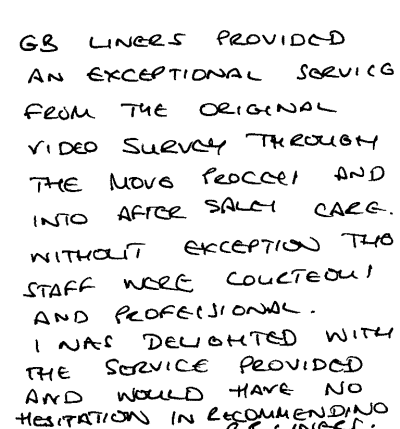 GB LINERS PROVIDED
AN EXCEPTIONAL SERVICE
FROM THE ORIGINAL
VIDEO SURVEY THROUGH
THE MOVE PROCESS AND
INTO AFTER SALES CARE.
WITHOUT EXCEPTION THE
STAFF WERE COURTEOUS
AND PROFESSIONAL.
I WAS DELIGHTED WITH
THE SERVICE PROVIDED
AND WOULD HAVE NO
HESITATION IN RECOMMENDING
GB LINERS.